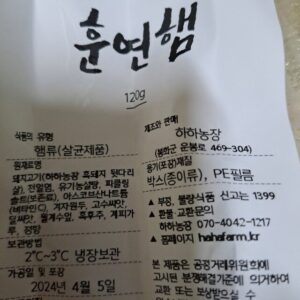 훈연햄
120g
식품의 유형
햄류(살균제품)
원재료명
돼지고기(하하농장 흑돼지 뒷다리
살), 천일염, 유기농설탕, 피클링
솔트(보존료), 아스코브산나트륨
(비타민C), 겨자원두, 고수씨앗,
딜씨앗, 월계수잎, 흑후추, 계피가
루, 정향
보관방법
2℃~3℃ 냉장보관
가공일 및 포장
2024년 4월 5일
제조와 판매
하하농장
(봉화군 운봉로 469-304)
용기(포장)재질
박스(종이류), PE필름
▲ 부정, 불량식품 신고는 1399
▲ 환불 교환문의
하하농장 070-4042-1217
▲ 홈페이지 hahafarm.kr
본 제품은 공정거래위원회에
고시된 분쟁해결기준에 의거하여
교환 또는 보상받을실 수